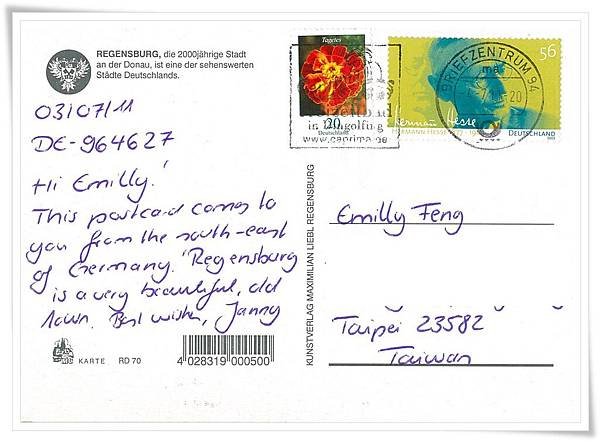 REGENSBURG, die 2000jährige Stadt
an der Donau, ist eine der sehenswerten
Städte Deutschlands.
03/07/11
DE-964627
Hi Emilly!
This postcard comes to
you from the south-east
of Germany. Regensburg
is a very beautiful, old
town. Best wishes, Janny
KARTE RD 70
4 028319 000500
KUNSTVERLAG MAXIMILIAN LIEBL REGENSBURG
Tagetes
20
Deutschland
in Dingolfing
www.caprima.de
56
Hermann Hesse
HERMANN HESSE 1877-
DEUTSCHLAND
BRIEFZENTRUM 94
Emilly Feng
Taipei 23582
Taiwan